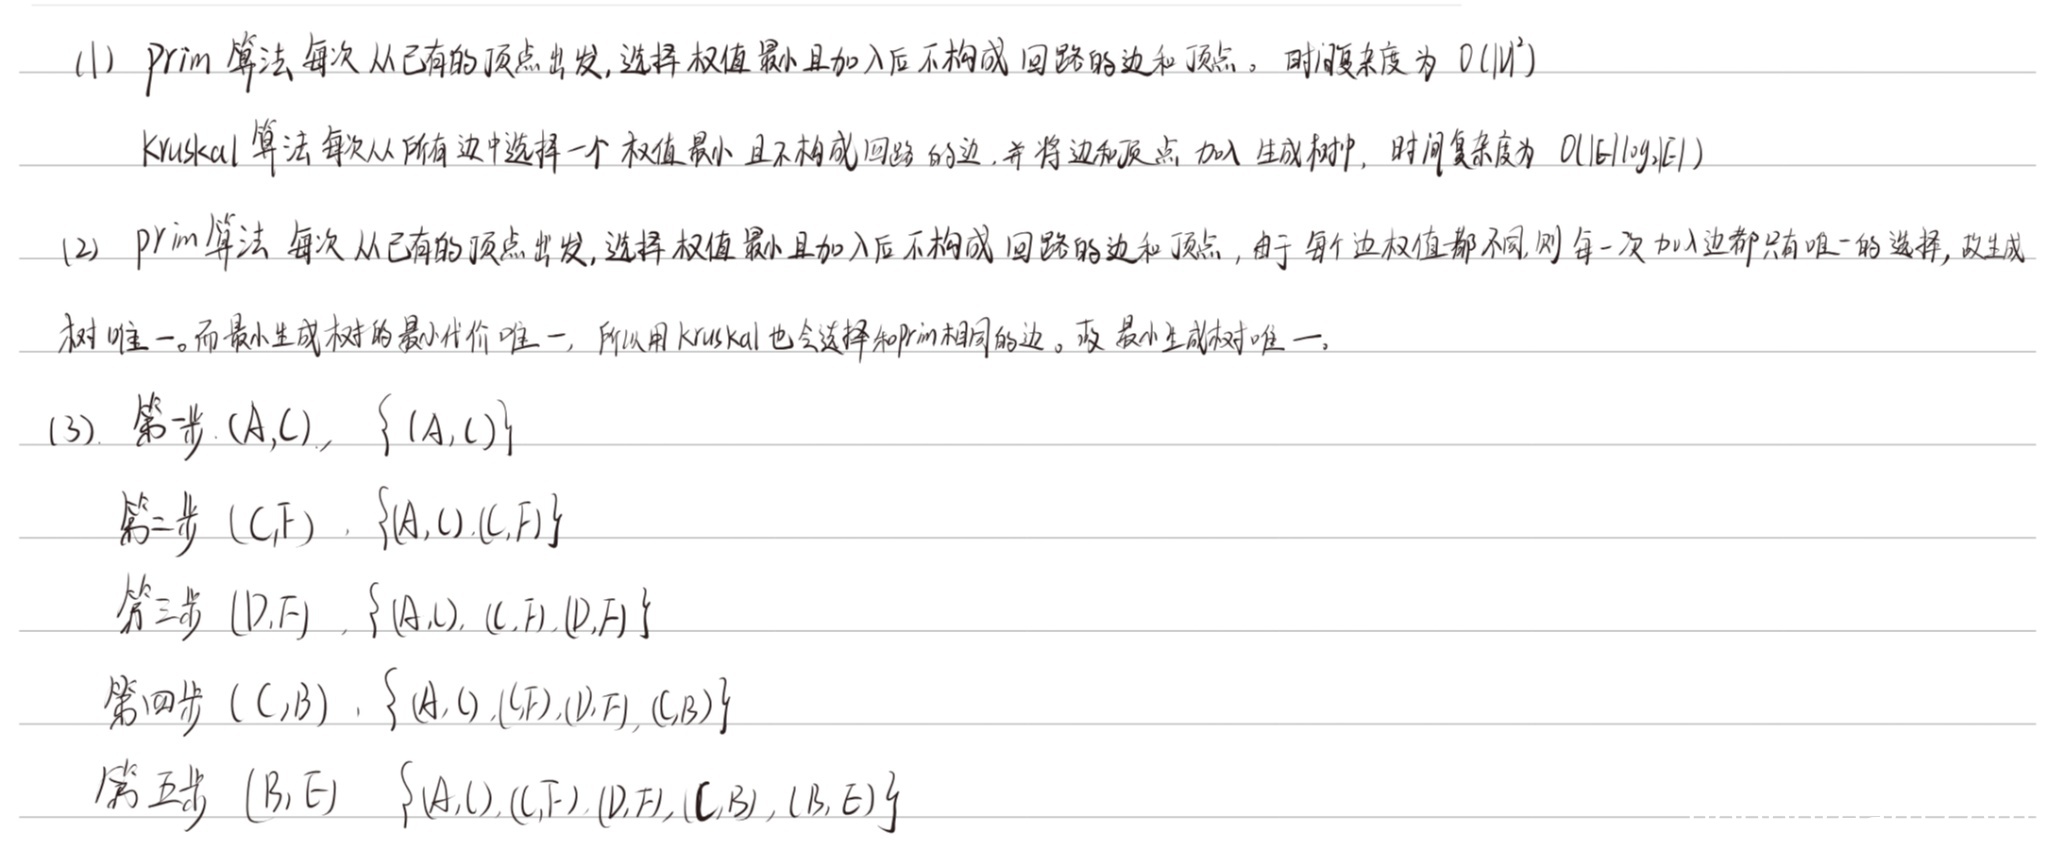 (1) Prim 算法每次从已有的顶点出发,选择权值最小且加入后不构成回路的边和顶点。时间复杂度为 O(|V|²)
Kruskal 算法每次从所有边中选择一个权值最小且不构成回路的边,并将边和顶点加入生成树中,时间复杂度为 O(|E|log₂|E|)
(2) prim算法 每次从已有的顶点出发,选择权值最小且加入后不构成回路的边和顶点,由于每个边权值都不同,则每一次加入边都只有唯一的选择,故生成
树唯一。而最小生成树的最小代价唯一,所以用Kruskal也会选择和prim相同的边。故最小生成树唯一。
(3). 第一步.(A,C), {(A,C)}
第二步 (C,F), {(A,C),(C,F)}
第三步 (D,F), {(A,C),(C,F),(D,F)}
第四步 (C,B), {(A,C),(C,F),(D,F),(C,B)}
第五步 (B,E) {(A,C),(C,F),(D,F),(C,B),(B,E)}